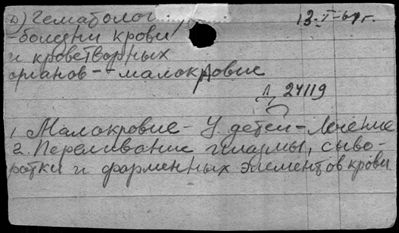 2) Гематолог. 13-I-61г.
-болезни крови
и кроветворных
органов--малокровие
Д 24119
1. Малокровие - У детей - Лечение
2. Переливание плазмы, сыво-
ротки и форменных элементов крови